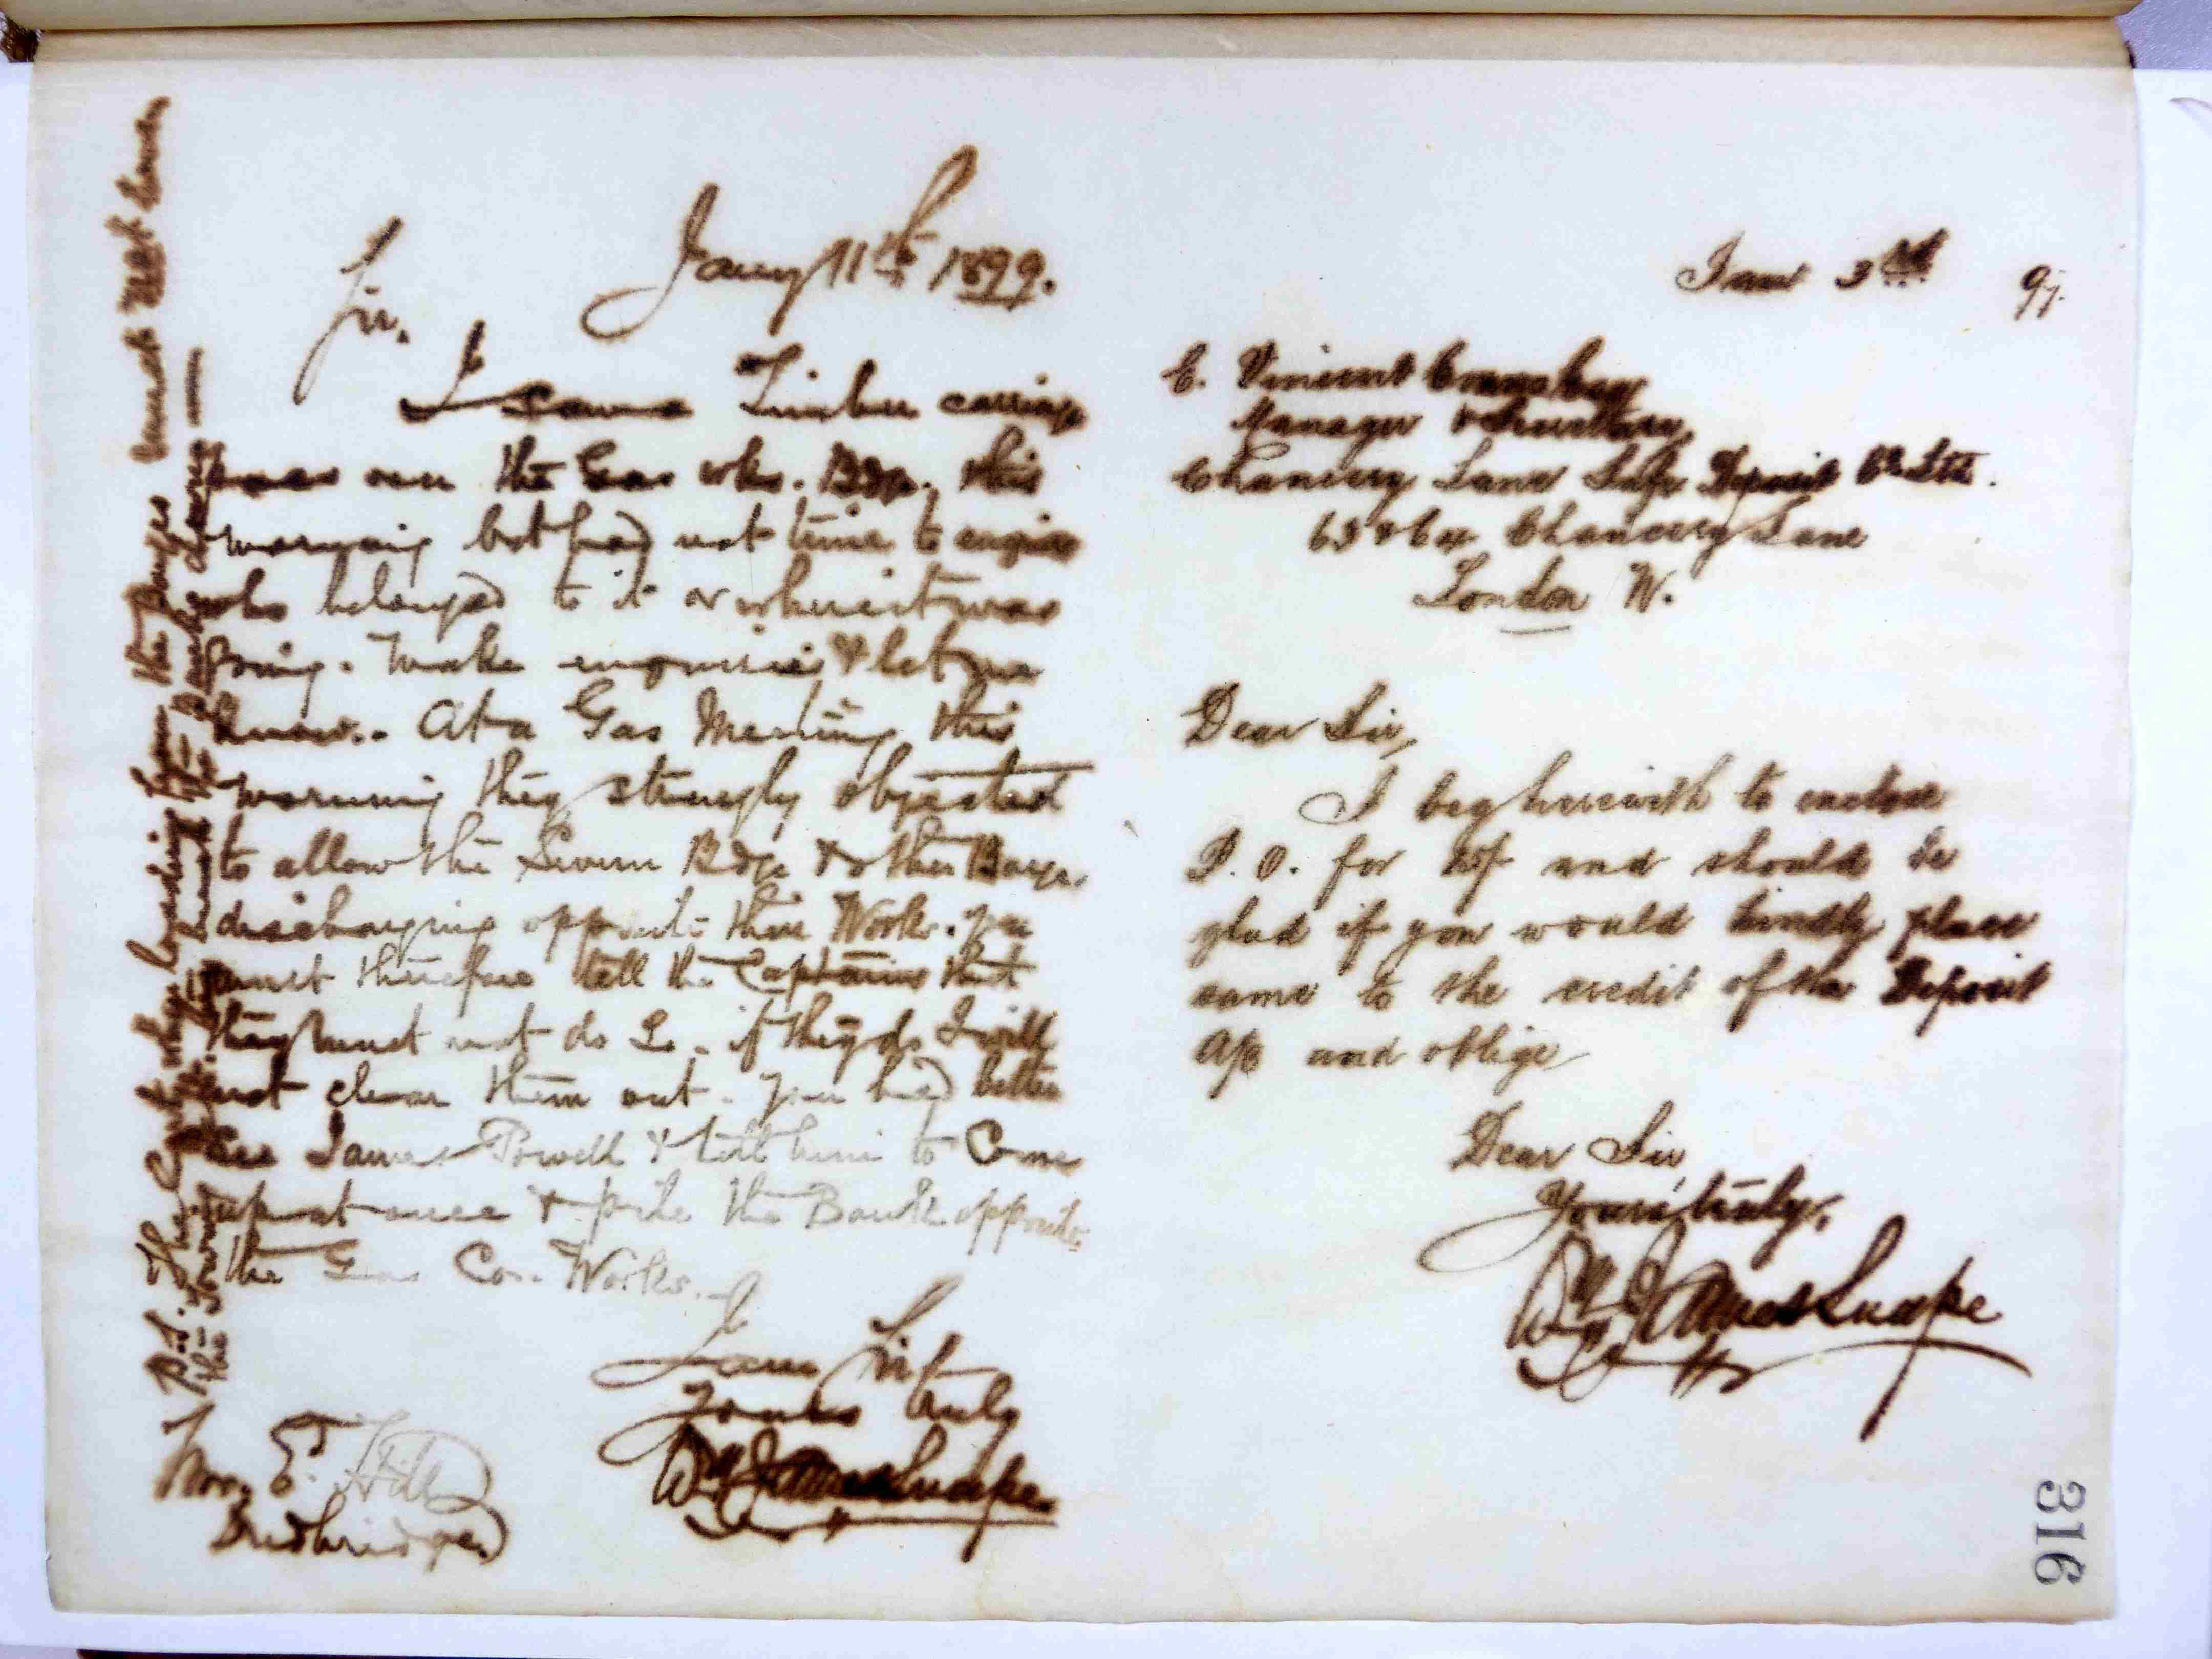 Jany 11th 1899.
Sir.
I saw a Timber carriage
pass over the Gas Wks. Bdge. this
morning but had not time to enquire
who belonged to it or where it was
going. Make enquiries & let me
know.. At a Gas Meeting this
morning they strongly objected
to allow the Severn Bdge & other Barges
discharging opposite their Works. You
must therefore tell the Captains that
they must not do so. if they do I will
not clear them out. You had better
see James Powell & tell him to Come
up at once & pile the Bank opposite
the Gas Co. Works.
I am Sir
Yours truly
Wm J. Snape
Mr. E. Hill
Dudbridge
P.S. The loading from the Barges must not
the
Jan 3rd 99.
C. Vincent
Manager & Secretary,
Chancery Lane Safe Deposit Co. Ltd.
63 & 64 Chancery Lane
London W.
Dear Sir,
I beg herewith to enclose
P.O. for and should be
glad if you would kindly place
same to the credit of the Deposit
A/c and oblige
Dear Sir,
Yours truly,
Wm J. Snape
316